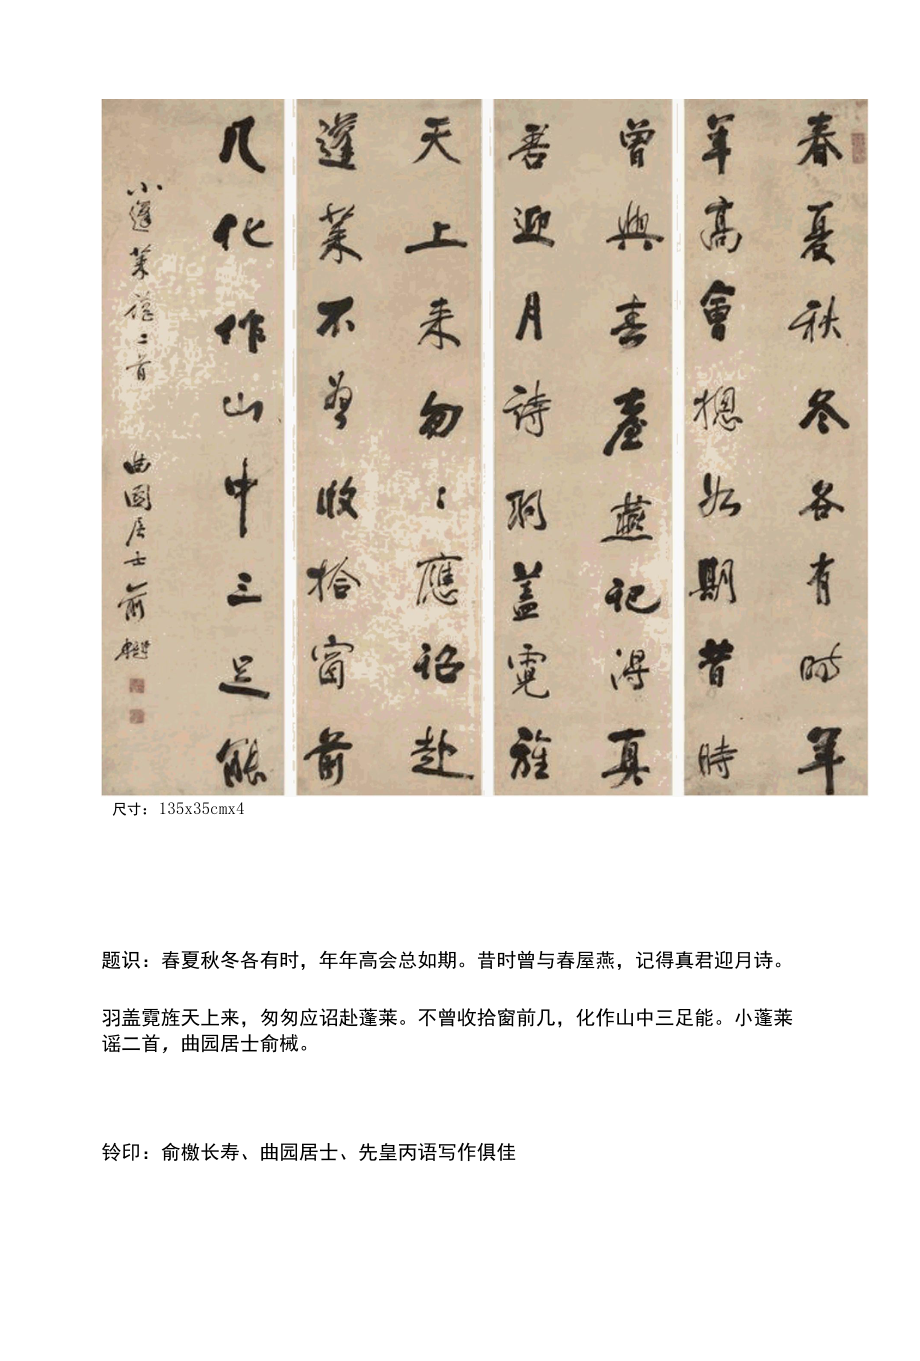 春夏秋冬各有时年
年高會揔如期昔時
曾與春臺燕記得真
君迎月詩羽蓋霓旌
天上来匆〻應詔赴
蓬莱不曾收拾窗前
几化作山中三足能
小蓬莱謡二首 曲園居士俞樾
尺寸：135x35cmx4
题识：春夏秋冬各有时，年年高会总如期。昔时曾与春屋燕，记得真君迎月诗。
羽盖霓旌天上来，匆匆应诏赴蓬莱。不曾收拾窗前几，化作山中三足能。小蓬莱
谣二首，曲园居士俞械。
铃印：俞檄长寿、曲园居士、先皇丙语写作俱佳